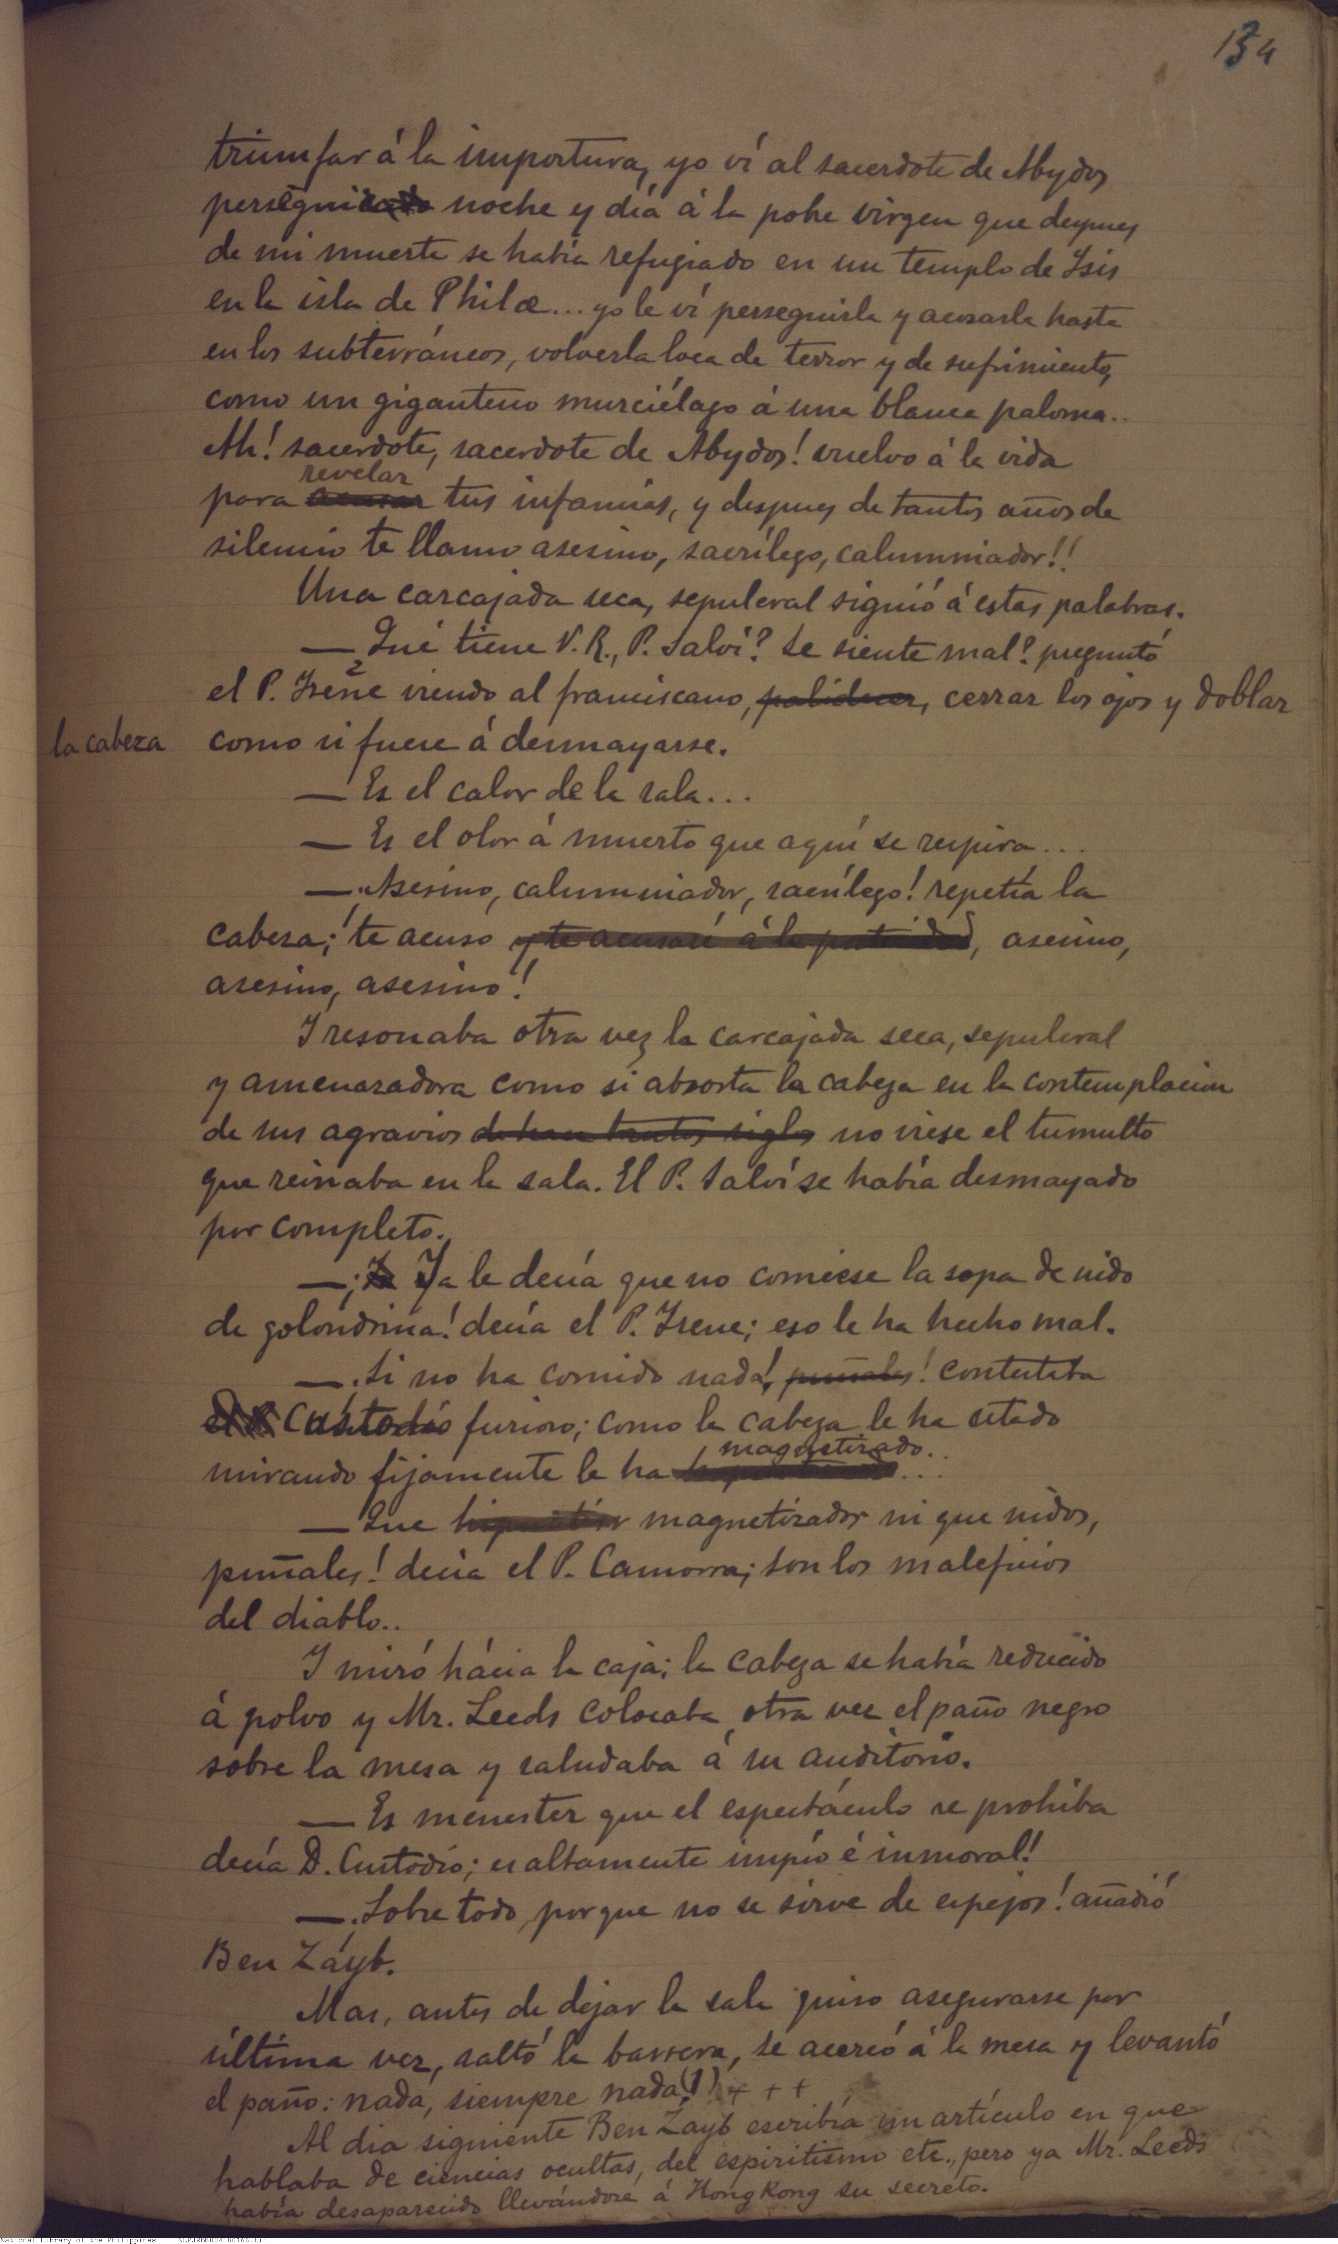 134
triumfar á la impostura, yo ví al sacerdote de Abydos
perseguiendo noche y día á la pobre virgen que despues
de mi muerte se había refugiado en un templo de Isis
en la isla de Philœ... yo le ví perseguirla y acosarla hasta
en los subterráneos, volverla loca de terror y de sufrimiento,
como un gigantesco murciélago á una blanca paloma..
Ah! sacerdote, sacerdote de Abydos! vuelvo á la vida
revelar
para acusar tus infamias, y despues de tantos años de
silencio te llamo asesino, sacrílego, calumniador!!
Una carcajada seca, sepulcral siguió á estas palabras.
— Qué tiene V. R., P. Salví? Se siente mal? preguntó
el P. Irene viendo al franciscano, palidecer, cerrar los ojos y doblar
la cabeza como si fuese á desmayarse.
— Es el calor de la sala...
— Es el olor á muerto que aquí se respira...
— ¡Asesino, calumniador, sacrílego! repetía la
cabeza; ¡te acuso y te acusaré á la posteridad, asesino,
asesino, asesino!
Y resonaba otra vez la carcajada seca, sepulcral
y amenazadora como si absorta la cabeza en la contemplacion
de sus agravios de hace tantos siglos no viese el tumulto
que reinaba en la sala. El P. Salví se había desmayado
por completo.
— ¡Ya le decía que no comiese la sopa de nido
de golondrina! decía el P. Irene; eso le ha hecho mal.
— ¡Si no ha comido nada! puñales! contestaba
Custodio furioso; como la cabeza le ha estado
magnetizado..
mirando fijamente le ha ...
— Que magnetizador ni que nidos,
puñales! decia el P. Camorra; son los maleficios
del diablo..
Y miró hácia la caja; la cabeza se había reducido
á polvo y Mr. Leeds colocaba otra vez el paño negro
sobre la mesa y saludaba á su auditorio.
— Es menester que el espectáculo se prohiba
decía D. Custodio; es altamente impío é inmoral!
— ¡Sobre todo, porque no se sirve de espejos! añadió
Ben Záyb.
Mas, antes de dejar la sala quiso asegurarse por
última vez, saltó la barrera, se acercó á la mesa y levantó
el paño: nada, siempre nada(1) + + +
Al dia siguiente Ben Záyb escribía un artículo en que
hablaba de ciencias ocultas, del espiritismo etc., pero ya Mr. Leeds
había desaparecido llevándose á HongKong su secreto.